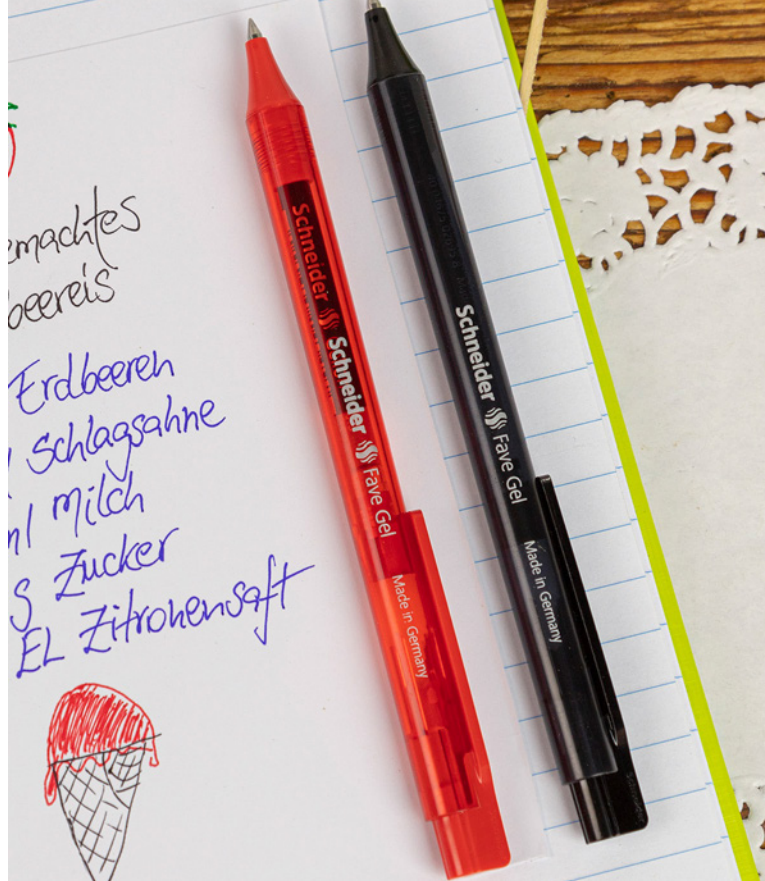 emachtes
beereis
Erdbeeren
Schlagsahne
ml Milch
g Zucker
EL Zitronensaft
Schneider
Schneider Fave Gel
Made in Germany
Schneider Fave Gel
Made in Germany